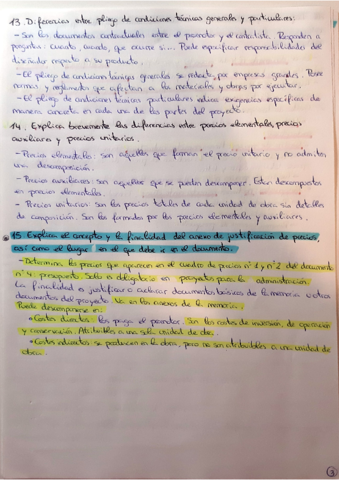 13. Diferencias entre pliego de condiciones técnicas generales y particulares:
- Son los documentos contractuales entre el promotor y el contratista. Responden a
preguntas: cuanto, cuando, que ocurre si.... Puede especificar responsabilidades del
diseñador respecto a su producto.
- El pliego de condiciones técnicas generales se redacta por empresas grandes.
normas y reglamentos que afectan a los materiales y obras por ejecutar.
- El pliego de condiciones técnicas particulares indica exigencias específicas de
manera concreta en cada una de las partes del proyecto.
14. Explica brevemente las diferencias entre precios elementales, precios
auxiliares y precios unitarios.
- Precios elementales: son aquellos que forman el precio unitario y no admiten
una descomposición.
- Precios auxiliares: son aquellos que se pueden descomponer. Estan descompuestos
en precios elementales.
- Precios unitarios: Son los precios totales de cada unidad de obra sin detalle
de composición. Son los formados por los precios elementales y auxiliares.
15. Explica el concepto y la finalidad del anexo de justificación de precios,
así como el lugar en el que debe ir en el documento.
- Determina los precios que aparecen en el cuadro de precios nº1 y nº2 del documento
nº4: presupuesto. Solo es obligatorio en proyectos para la administración.
La finalidad es justificar o aclarar documentos básicos de la memoria u otros
documentos del proyecto. Va en los anexos de la memoria.
Puede descomponerse en:
• Costes directos: los paga el promotor. Son los costes de inversión, de operación
y conservación. Atribuibles a una sola unidad de obra.
• Costes indirectos se producen en la obra, pero no son atribuibles a una unidad de
obra.
3